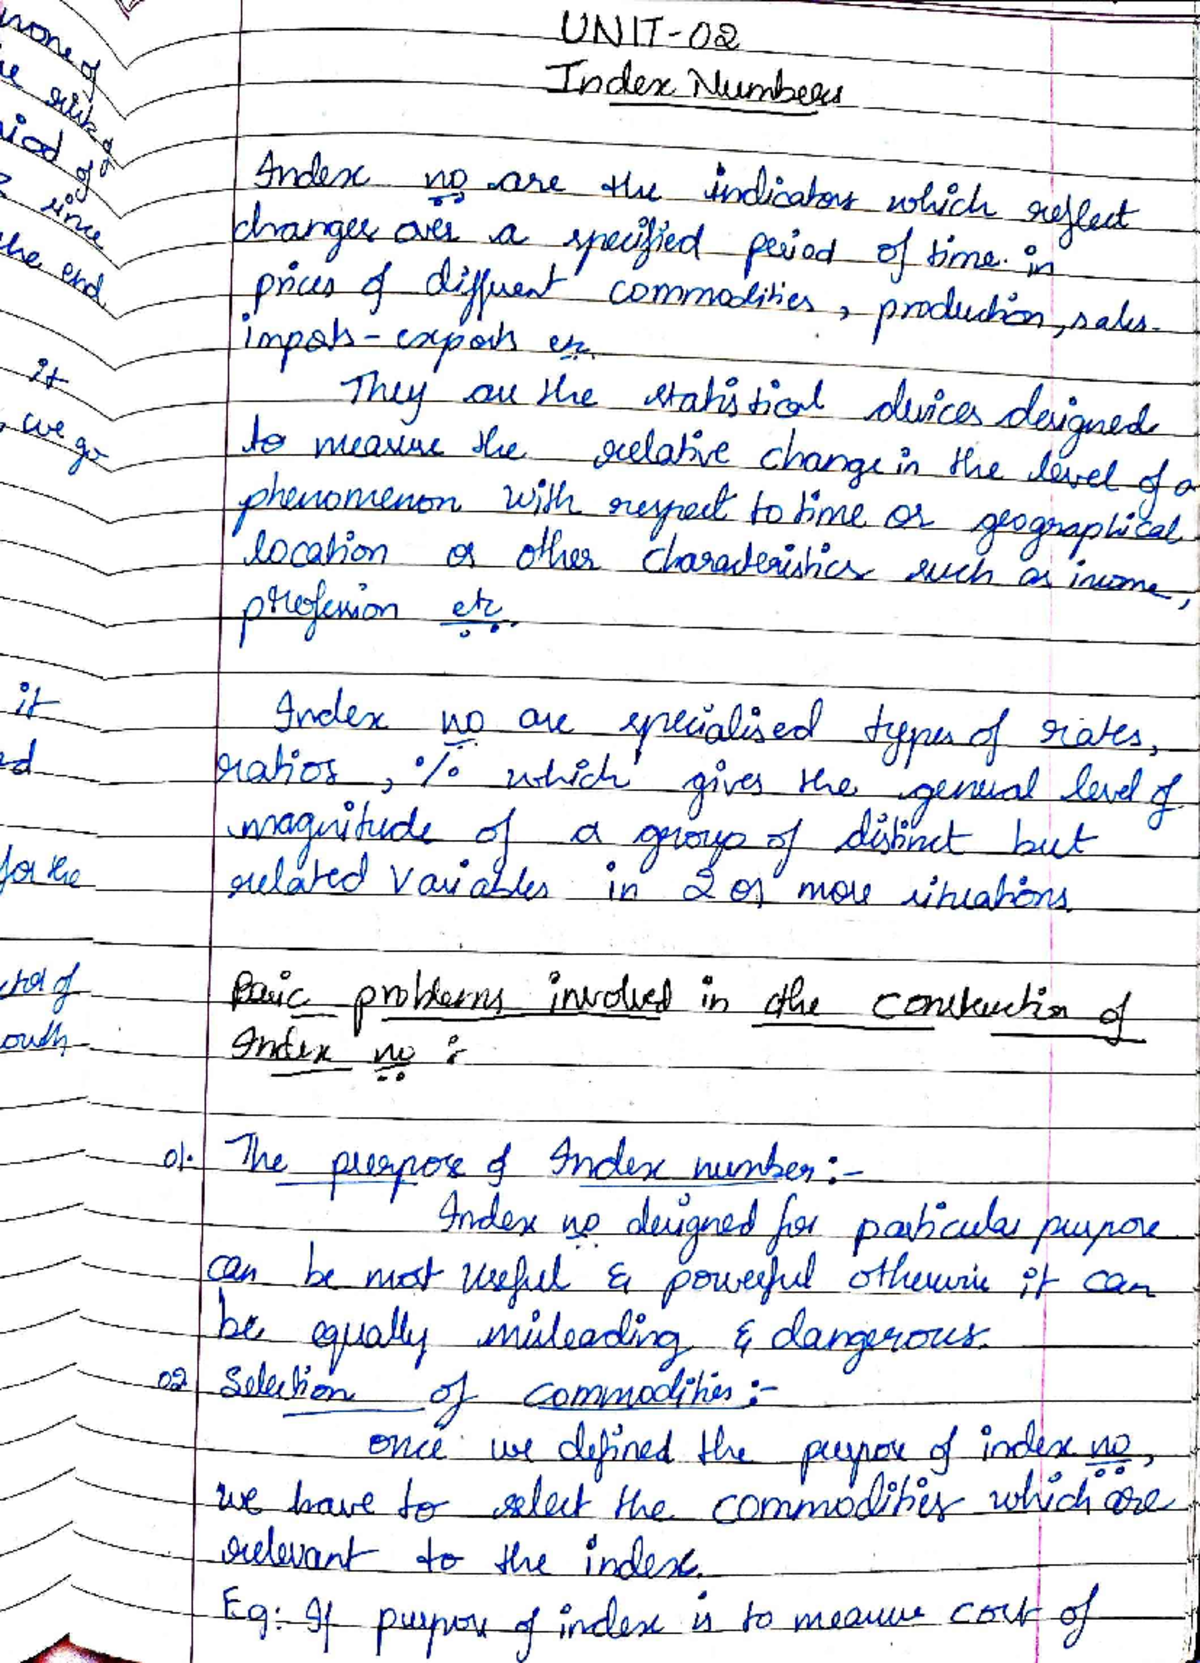 UNIT-02
Index Numbers
Index no are the indicators which reflect
changes over a specified period of time in
prices of different commodities, production, sales
imports-exports etc.
They are the statistical devices designed
to measure the relative change in the level of a
phenomenon with respect to time or geographical
location or other characteristics such as income,
profession etc.
Index no are specialised types of rates,
ratios, % which gives the general level of
magnitude of a group of distinct but
related variables in 2 or more situations.
Basic problems involved in the construction of
Index no :
01. The purpose of Index number :-
Index no designed for particular purpose
can be most useful & powerful otherwise it can
be equally misleading & dangerous.
02 Selection of commodities :-
once we defined the purpose of index no,
we have to select the commodities which are
relevant to the index.
Eg: If purpose of index is to measure cost of
none of
risk of
period of
since
the end
it
we go
it
ed
for the
of
outh